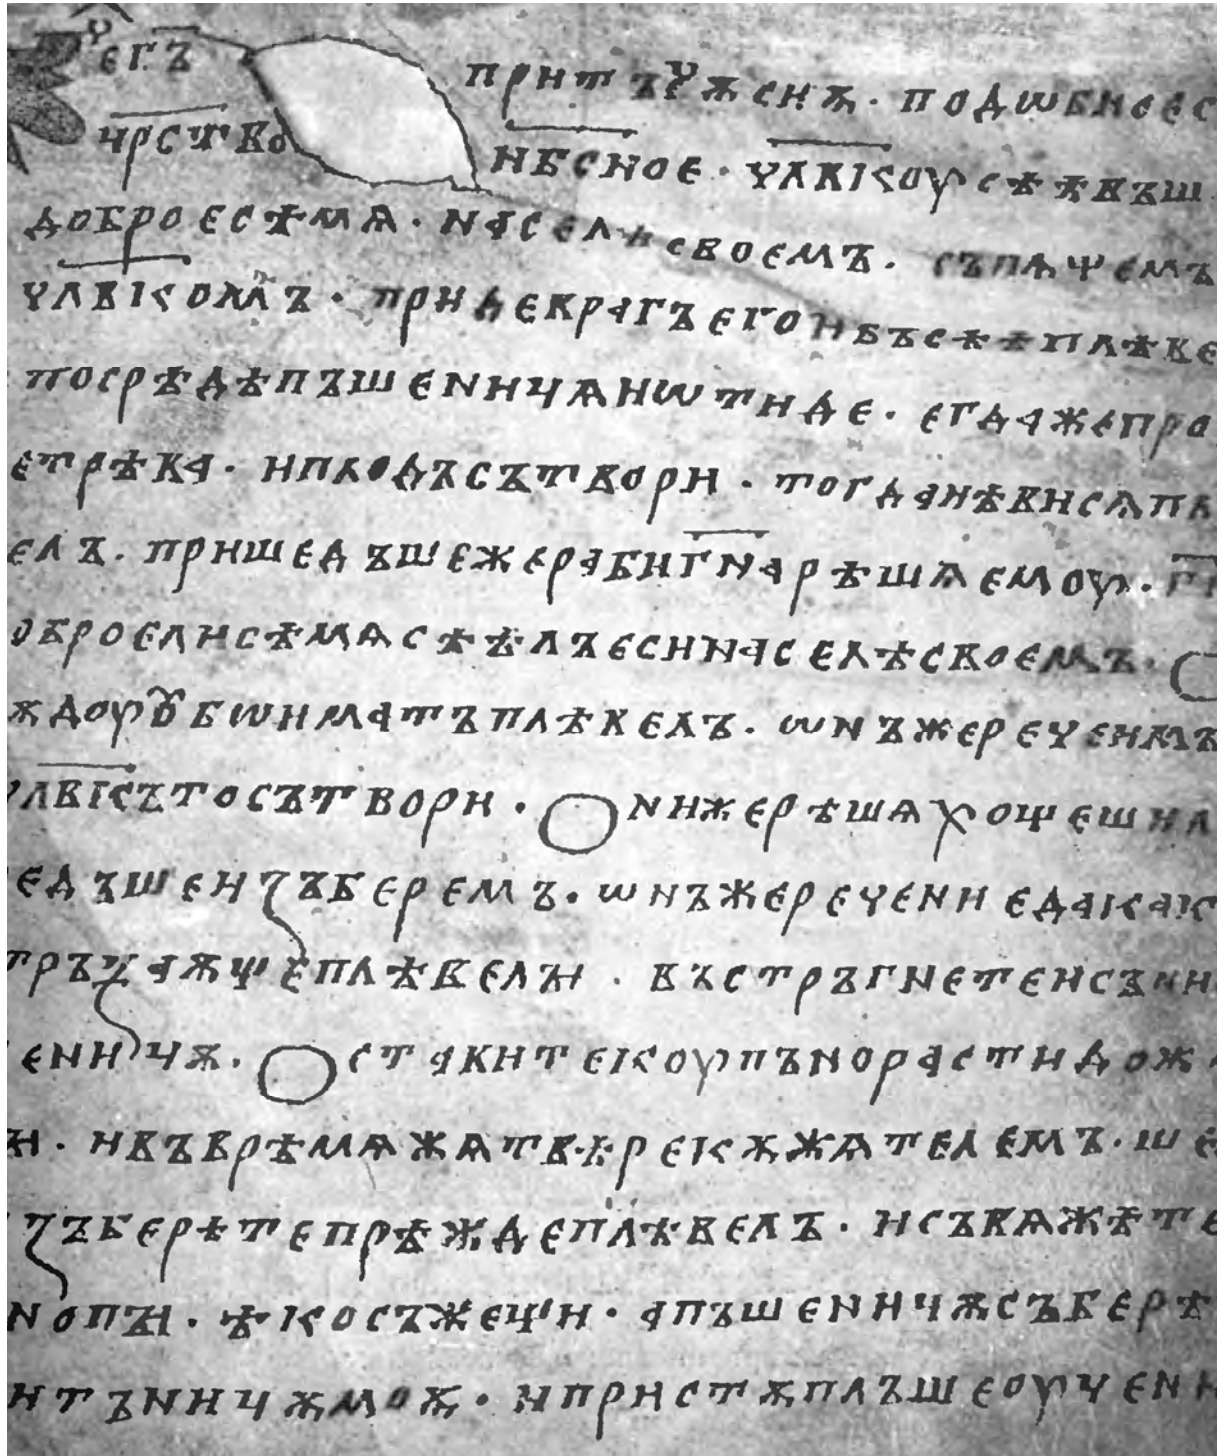 рече г҃ъ притъчѫ сиѫ · подѡбно ес
цр҃ство нб҃сное · чл҃вкоу сѣѣвъш
доброе сѣмѧ · на селѣ своемъ · съпѧщемъ
чл҃вкомъ · приде врагъ его и въсѣѣ плѣве
посрѣдѣ пъшеницѧ и ѡтиде · егда же про
е трѣва · и плодъ сътвори · тогда и ѣви сѧ пл
елъ · пришедъше же раби г҃на рѣшѧ емоу · г҃и
оброе ли сѣмѧ сѣѣлъ еси на селѣ своемъ · О
ждоу оубѡ иматъ плѣвелъ · ѡнъ же рече имъ
чл҃вкъ то сътвори · Они же рѣшѧ хощеши л
едъше изъберемъ · ѡнъ же рече ни еда как
тръзаѭще плѣвелꙑ · въстръгнете и съ ни
еницѫ · Оставите коупъно расти до ж
ꙑ · и въ врѣмѧ жѧтвѣ рекѫ жѧтелемъ · ш
изъберѣте прѣжде плѣвелъ · и съвѧжѣте
нопꙑ · ѣко съжещи · а пъшеницѫ съберѣ
итъницѫ моѭ · и пристѫплъше оучени